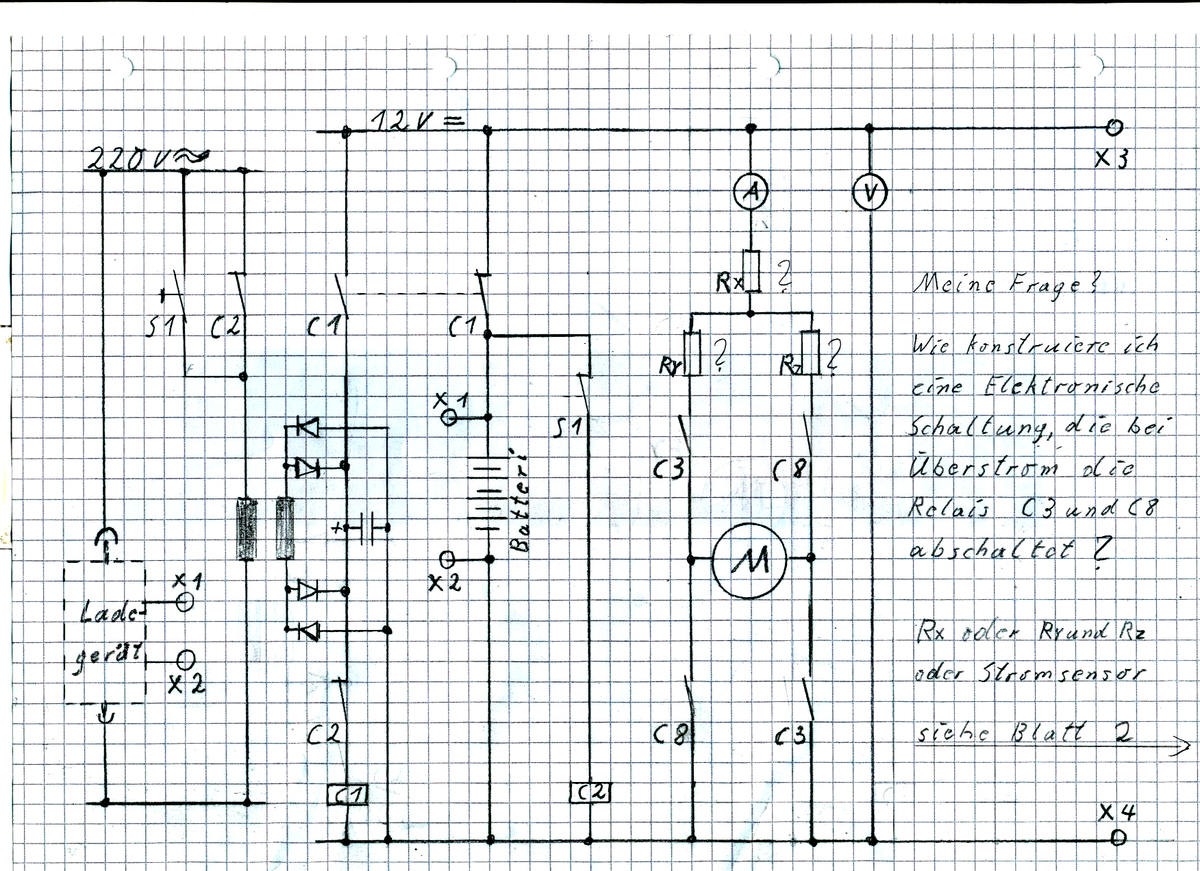 12V =
220V≈
X3
A
V
Rx ?
S1
C2
C1
C1
Ry ?
Rz ?
X1
S1
C3
C8
+
Batteri
X2
M
X1
Lade-
gerät
X2
C2
C8
C3
C1
C2
X4
Meine Frage?
Wie konstruiere ich
eine Elektronische
Schaltung, die bei
Überstrom die
Relais C3 und C8
abschaltet ?
Rx oder Ry und Rz
oder Stromsensor
siehe Blatt 2